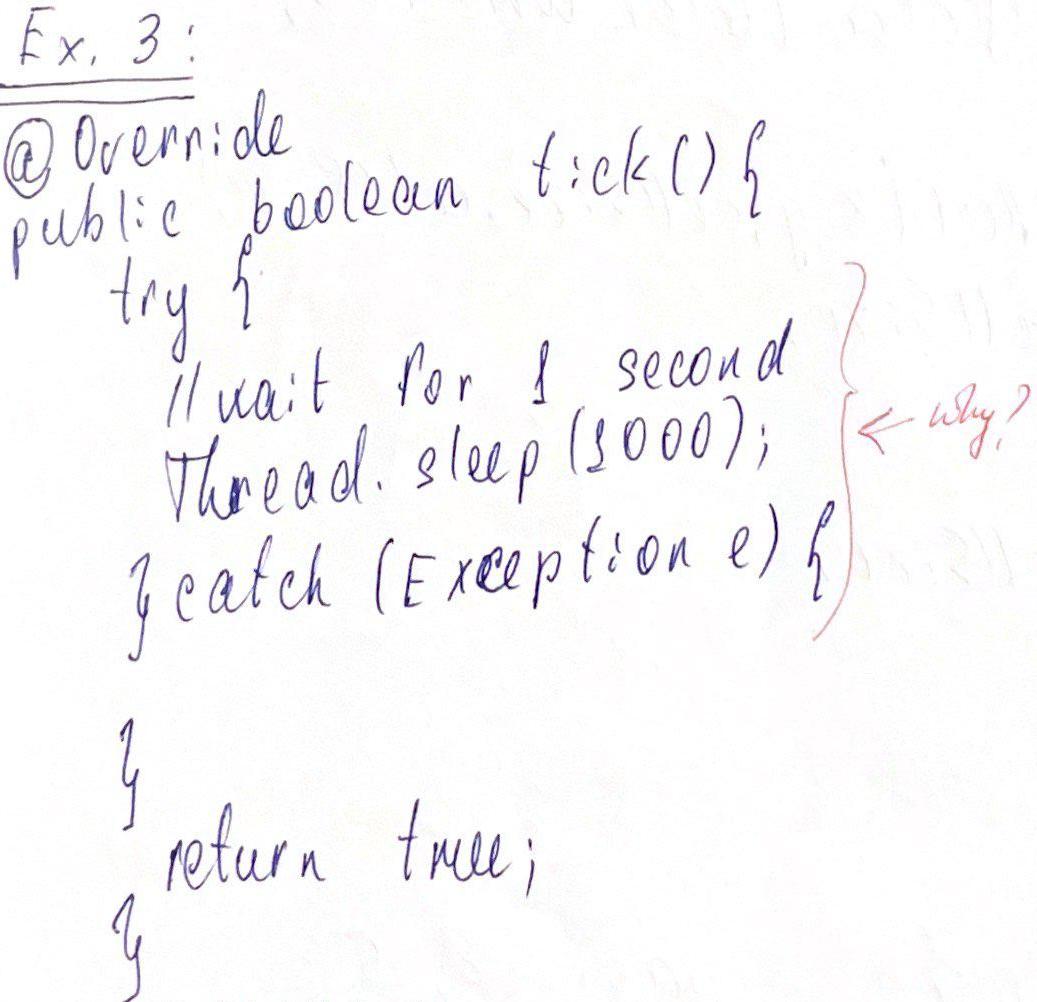 Ex. 3:
@Override
public boolean tick() {
try {
//wait for 1 second
Thread.sleep(1000);
← why?
} catch (Exception e) {
}
return true;
}